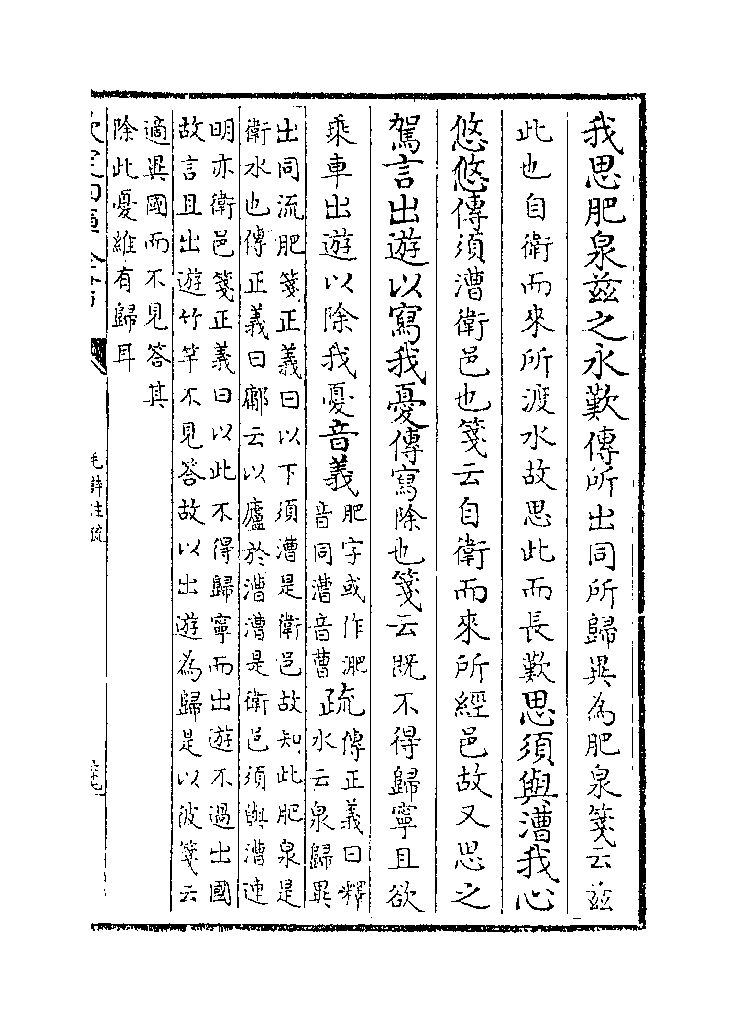 我思肥泉兹之永歎傳所出同所歸異為肥泉箋云兹
此也自衛而來所渡水故思此而長歎思須與漕我心
悠悠傳須漕衛邑也箋云自衛而來所經邑故又思之
駕言出遊以寫我憂傳寫除也箋云既不得歸寧且欲
乘車出遊以除我憂音義肥字或作淝音同漕音曹疏傳正義曰釋水云泉歸異
出同流肥箋正義曰以下須漕是衛邑故知此肥泉是
衛水也傳正義曰鄘云以廬於漕漕是衛邑須與漕連
明亦衛邑箋正義曰以此不得歸寧而出遊不過出國
故言且出遊竹竿不見答故以出遊為歸是以彼箋云
適異國而不見答其
除此憂維有歸耳
毛詩注疏